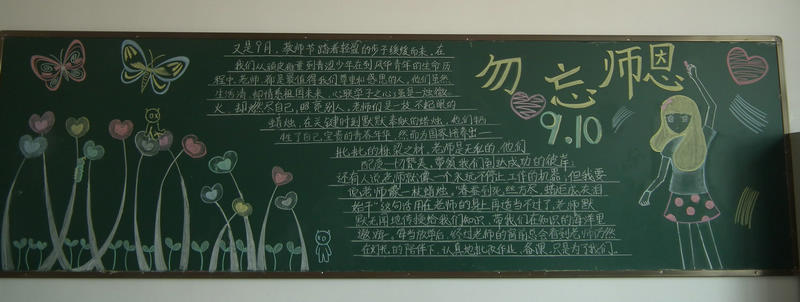 又是9月，教师节踏着轻盈的步子缓缓而来，在
我们从顽皮的童到青涩少年在到风华青年的生命历
程中，老师，都是最值得我们尊重和感恩的人，他们虽然
生活清 却情系祖国未来，心联学子之心；虽是一烛微
火，却燃尽自己，照亮别人，老师们是一枝不起眼的
蜡烛，在关键时刻默默奉献的蜡烛，他们牺
牲了自己宝贵的青春年华，然而为国家培养出一
批批的栋梁之材，老师是无私的，他们
配受一切赞美，带领我们到达成功的彼岸；
还有人说老师就像一个永远不停止工作的机器，但我要
说老师像一枝蜡烛，“春蚕到死丝方尽，蜡炬成灰泪
始干”这句话用在老师的身上再适当不过了，老师默
默无闻地传授给我们知识，带我们在知识的海洋里
遨游。每当放学后，经过老师的窗前总会看到老师仍然
在灯光的陪伴下，认真地批改作业、备课，只是为了我们。
勿忘师恩
9.10